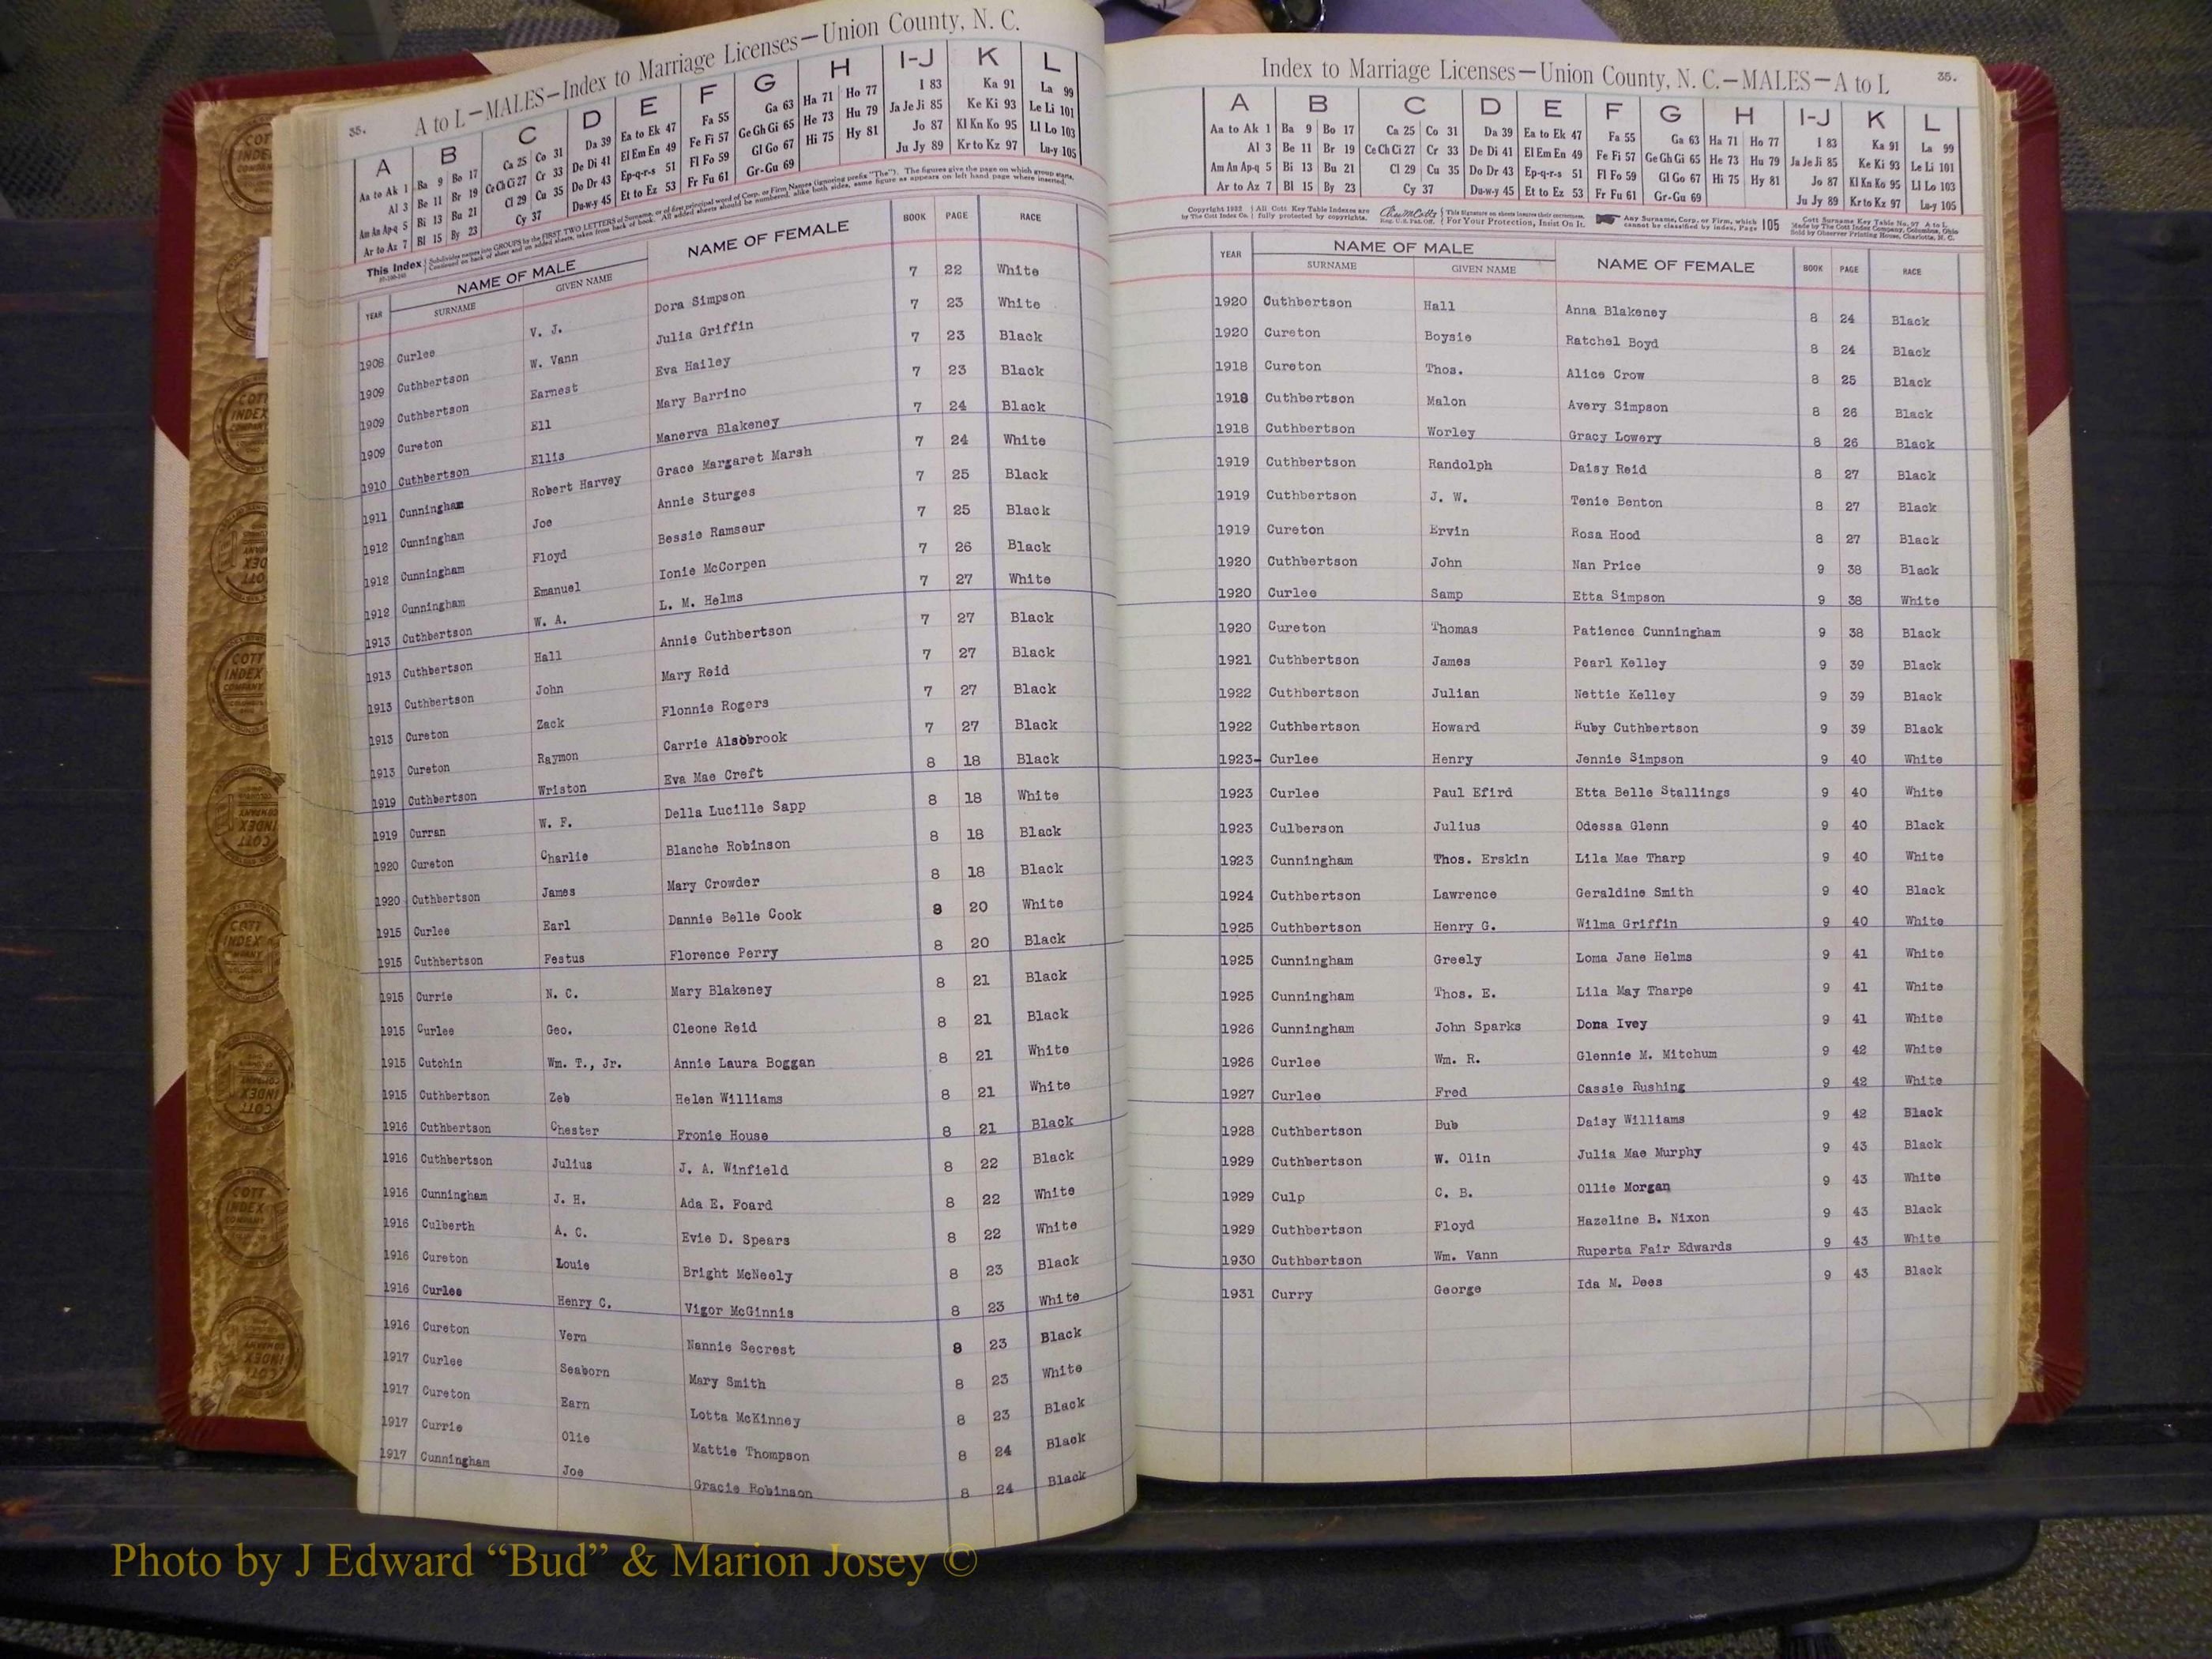 35. A to L—MALES—Index to Marriage Licenses—Union County, N. C.
A B C D E F G H I-J K L
Aa to Ak 1 Ba 9 Bo 17 Ca 25 Co 31 Da 39 Ea to Ek 47 Fa 55 Ga 63 Ha 71 Ho 77 I 83 Ka 91 La 99
Al 3 Be 11 Br 19 Ce Ch Ci 27 Cr 33 De Di 41 El Em En 49 Fe Fi 57 Ge Gh Gi 65 He 73 Hu 79 Ja Je Ji 85 Ke Ki 93 Le Li 101
Am An Ap-q 5 Bi 13 Bu 21 Cl 29 Cu 35 Do Dr 43 Ep-q-r-s 51 Fl Fo 59 Gl Go 67 Hi 75 Hy 81 Jo 87 Kl Kn Ko 95 Ll Lo 103
Ar to Az 7 Bl 15 By 23 Cy 37 Du-w-y 45 Et to Ez 53 Fr Fu 61 Gr-Gu 69 Ju Jy 89 Kr to Kz 97 Lu-y 105
This Index Subdivides names into GROUPS by the FIRST TWO LETTERS of Surname, or of first principal word of Corp. or Firm Names (ignoring prefix "The"). The figures give the page on which group starts.
Continued on back of sheet and on added sheets, taken from back of book. All added sheets should be numbered, alike both sides, same figure as appears on left hand page where inserted.
YEAR NAME OF MALE SURNAME GIVEN NAME NAME OF FEMALE BOOK PAGE RACE
1908 Curlee V. J. Dora Simpson 7 22 White
1909 Cuthbertson W. Vann Julia Griffin 7 23 White
1909 Cuthbertson Earnest Eva Hailey 7 23 Black
1909 Cureton Ell Mary Barrino 7 23 Black
1910 Cuthbertson Ellis Manerva Blakeney 7 24 Black
1911 Cunningham Robert Harvey Grace Margaret Marsh 7 24 White
1912 Cunningham Joe Annie Sturges 7 25 Black
1912 Cunningham Floyd Bessie Ramseur 7 25 Black
1912 Cunningham Emanuel Ionie McCorpen 7 26 Black
1913 Cuthbertson W. A. L. M. Helms 7 27 White
1913 Cuthbertson Hall Annie Cuthbertson 7 27 Black
1913 Cuthbertson John Mary Reid 7 27 Black
1913 Cureton Zack Flonnie Rogers 7 27 Black
1913 Cureton Raymon Carrie Alsobrook 7 27 Black
1919 Cuthbertson Wriston Eva Mae Creft 8 18 Black
1919 Curran W. F. Della Lucille Sapp 8 18 White
1920 Cureton Charlie Blanche Robinson 8 18 Black
1920 Cuthbertson James Mary Crowder 8 18 Black
1915 Curlee Earl Dannie Belle Cook 8 20 White
1915 Cuthbertson Festus Florence Perry 8 20 Black
1915 Currie N. C. Mary Blakeney 8 21 Black
1915 Curlee Geo. Cleone Reid 8 21 Black
1915 Cutchin Wm. T., Jr. Annie Laura Boggan 8 21 White
1915 Cuthbertson Zeb Helen Williams 8 21 White
1916 Cuthbertson Chester Fronie House 8 21 Black
1916 Cuthbertson Julius J. A. Winfield 8 22 Black
1916 Cunningham J. H. Ada E. Foard 8 22 White
1916 Culberth A. C. Evie D. Spears 8 22 White
1916 Cureton Louie Bright McNeely 8 23 Black
1916 Curlee Henry C. Vigor McGinnis 8 23 White
1916 Cureton Vern Nannie Secrest 8 23 Black
1917 Curlee Seaborn Mary Smith 8 23 White
1917 Cureton Earn Lotta McKinney 8 23 Black
1917 Currie Olie Mattie Thompson 8 24 Black
1917 Cunningham Joe Gracie Robinson 8 24 Black
Index to Marriage Licenses—Union County, N. C.—MALES—A to L 35.
A B C D E F G H I-J K L
Aa to Ak 1 Ba 9 Bo 17 Ca 25 Co 31 Da 39 Ea to Ek 47 Fa 55 Ga 63 Ha 71 Ho 77 I 83 Ka 91 La 99
Al 3 Be 11 Br 19 Ce Ch Ci 27 Cr 33 De Di 41 El Em En 49 Fe Fi 57 Ge Gh Gi 65 He 73 Hu 79 Ja Je Ji 85 Ke Ki 93 Le Li 101
Am An Ap-q 5 Bi 13 Bu 21 Cl 29 Cu 35 Do Dr 43 Ep-q-r-s 51 Fl Fo 59 Gl Go 67 Hi 75 Hy 81 Jo 87 Kl Kn Ko 95 Ll Lo 103
Ar to Az 7 Bl 15 By 23 Cy 37 Du-w-y 45 Et to Ez 53 Fr Fu 61 Gr-Gu 69 Ju Jy 89 Kr to Kz 97 Lu-y 105
Copyright 1922 by The Cott Index Co. All Cott Key Table Indexes are fully protected by copyrights. Reg. U.S. Pat. Off. This Signature on sheets insures their correctness. For Your Protection, Insist On It. Any Surname, Corp. or Firm, which cannot be classified by index, Page 105 Cott Surname Key Table No. 97 A to L Made by The Cott Index Company, Columbus, Ohio Sold by Observer Printing House, Charlotte, N. C.
YEAR NAME OF MALE SURNAME GIVEN NAME NAME OF FEMALE BOOK PAGE RACE
1920 Cuthbertson Hall Anna Blakeney 8 24 Black
1920 Cureton Boysie Ratchel Boyd 8 24 Black
1918 Cureton Thos. Alice Crow 8 25 Black
1918 Cuthbertson Malon Avery Simpson 8 26 Black
1918 Cuthbertson Worley Gracy Lowery 8 26 Black
1919 Cuthbertson Randolph Daisy Reid 8 27 Black
1919 Cuthbertson J. W. Tenie Benton 8 27 Black
1919 Cureton Ervin Rosa Hood 8 27 Black
1920 Cuthbertson John Nan Price 9 38 Black
1920 Curlee Samp Etta Simpson 9 38 White
1920 Cureton Thomas Patience Cunningham 9 38 Black
1921 Cuthbertson James Pearl Kelley 9 39 Black
1922 Cuthbertson Julian Nettie Kelley 9 39 Black
1922 Cuthbertson Howard Ruby Cuthbertson 9 39 Black
1923- Curlee Henry Jennie Simpson 9 40 White
1923 Curlee Paul Efird Etta Belle Stallings 9 40 White
1923 Culberson Julius Odessa Glenn 9 40 Black
1923 Cunningham Thos. Erskin Lila Mae Tharp 9 40 White
1924 Cuthbertson Lawrence Geraldine Smith 9 40 Black
1925 Cuthbertson Henry G. Wilma Griffin 9 40 White
1925 Cunningham Greely Loma Jane Helms 9 41 White
1925 Cunningham Thos. E. Lila May Tharpe 9 41 White
1926 Cunningham John Sparks Dona Ivey 9 41 White
1926 Curlee Wm. R. Glennie M. Mitchum 9 42 White
1927 Curlee Fred Cassie Rushing 9 42 White
1928 Cuthbertson Bub Daisy Williams 9 42 Black
1929 Cuthbertson W. Olin Julia Mae Murphy 9 43 Black
1929 Culp C. B. Ollie Morgan 9 43 White
1929 Cuthbertson Floyd Hazeline B. Nixon 9 43 Black
1930 Cuthbertson Wm. Vann Ruperta Fair Edwards 9 43 White
1931 Curry George Ida M. Dees 9 43 Black
Photo by J Edward “Bud” & Marion Josey ©